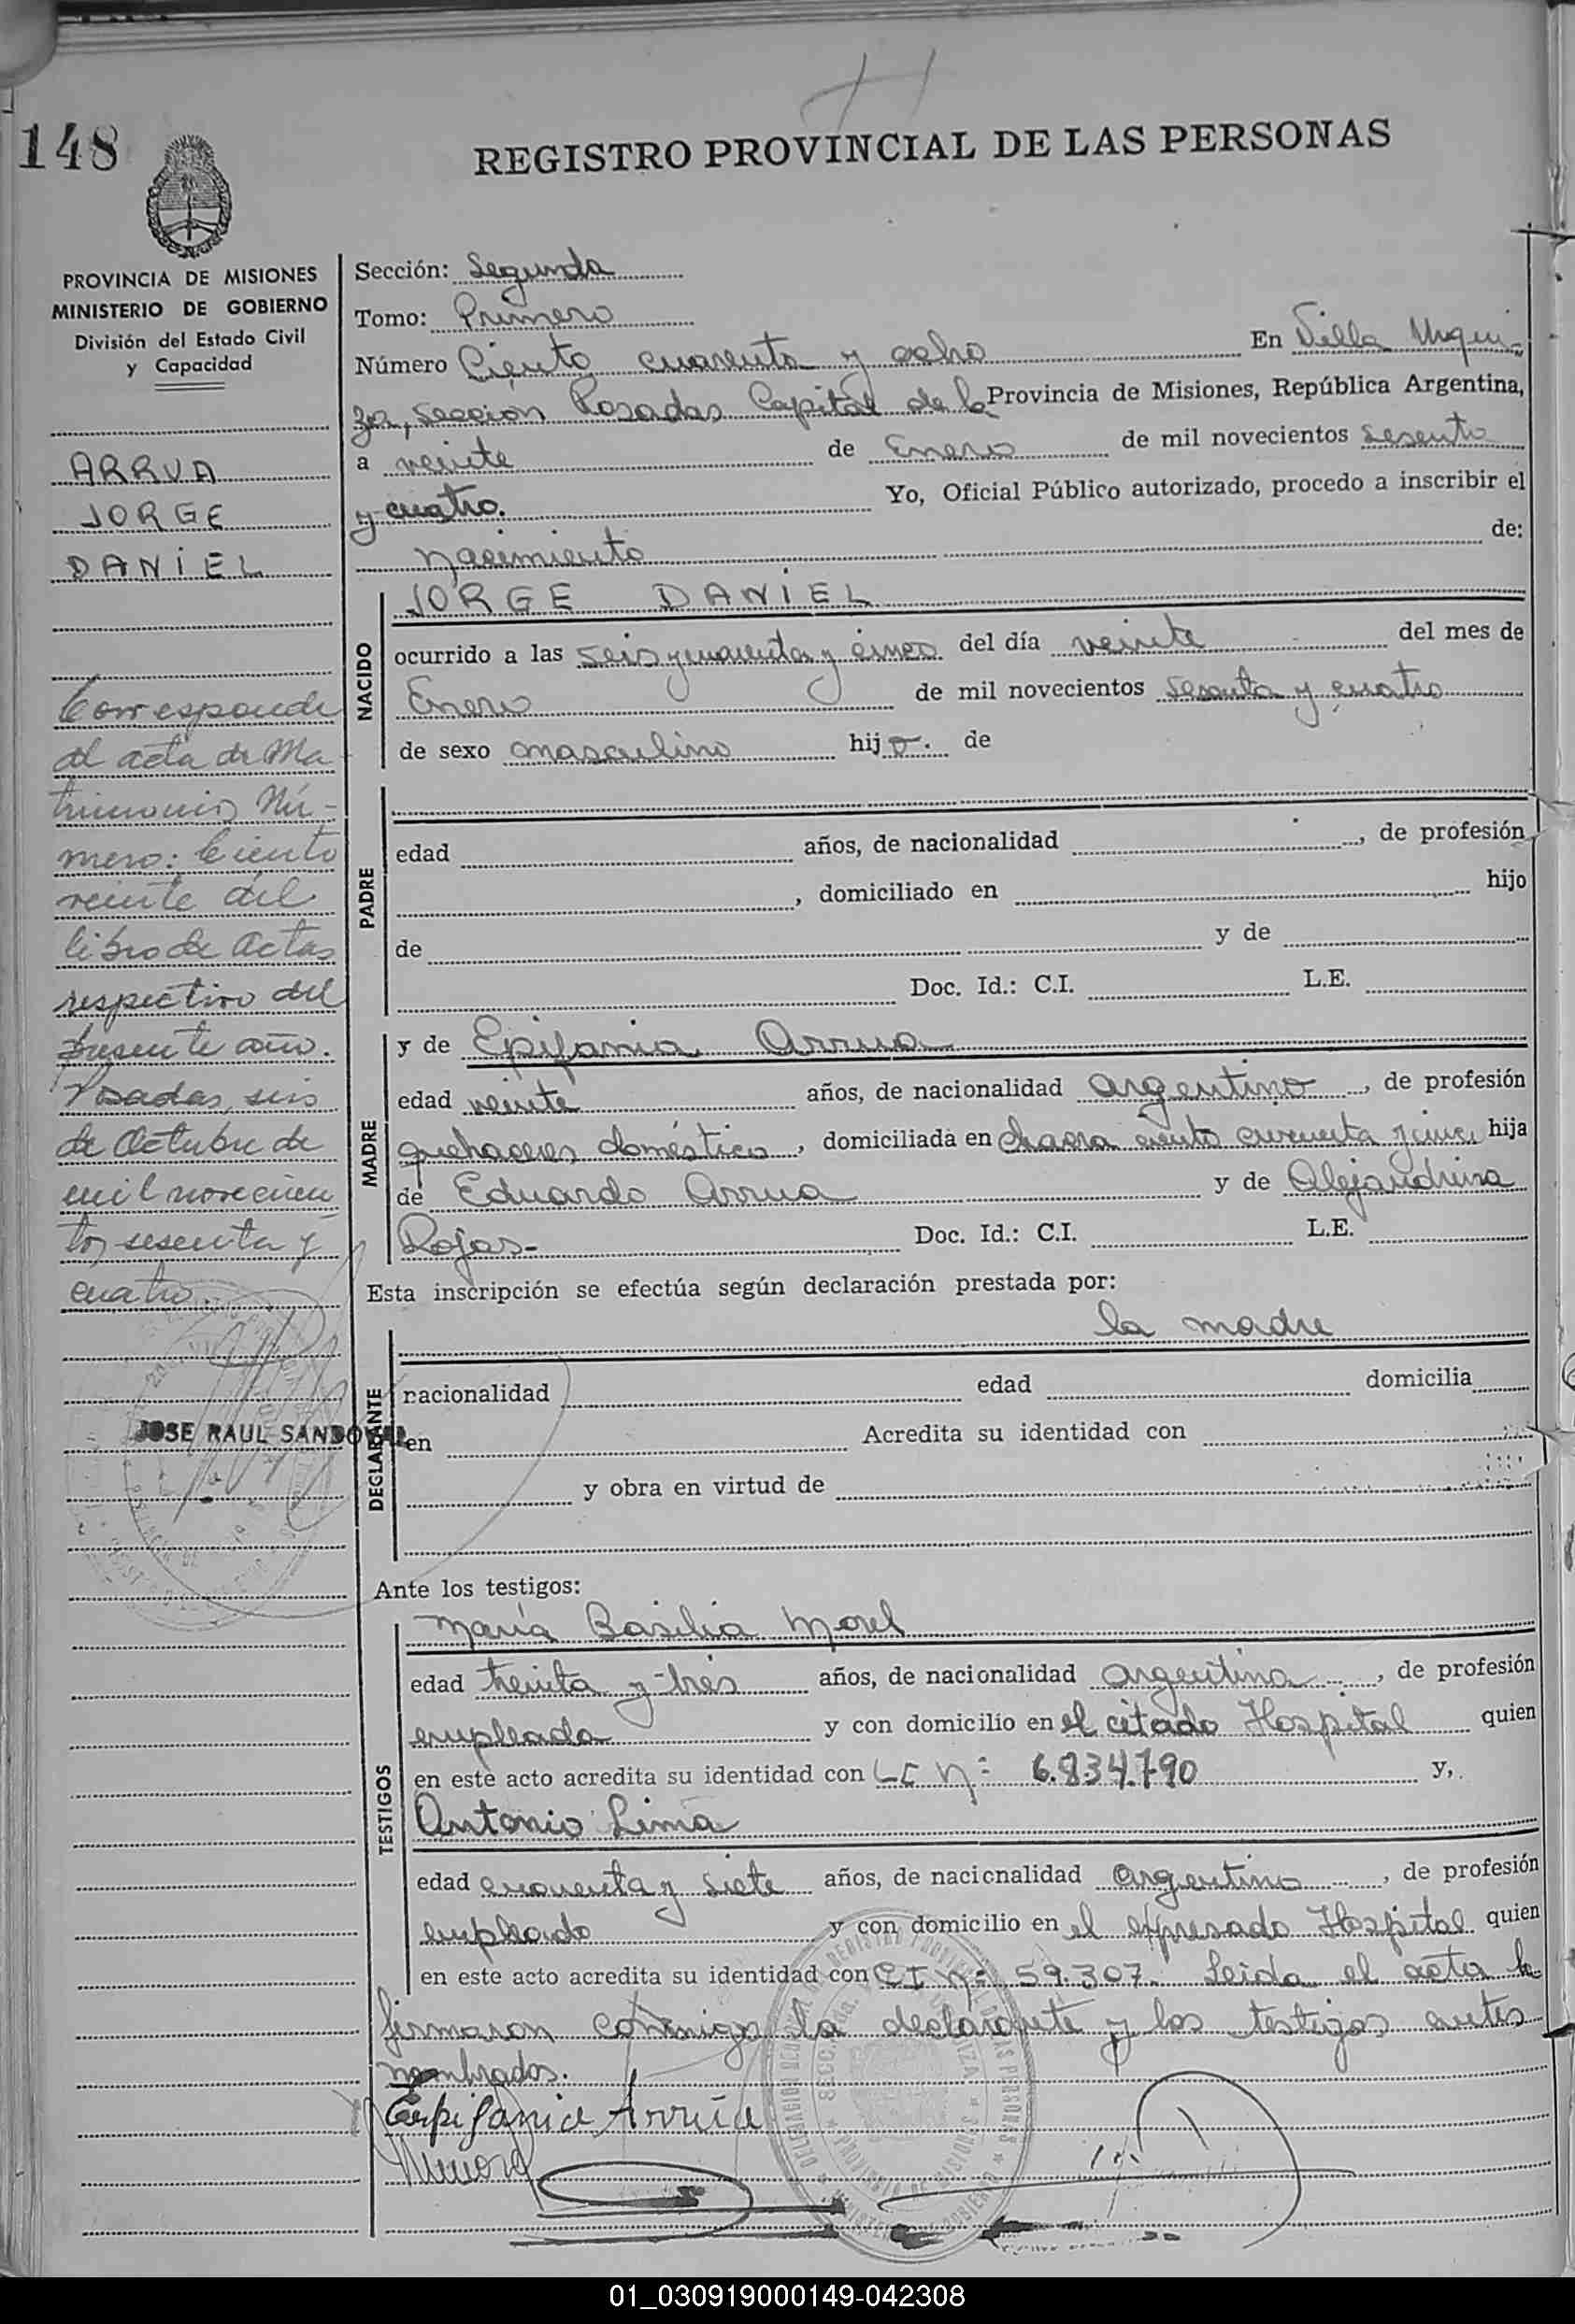 148
REGISTRO PROVINCIAL DE LAS PERSONAS
PROVINCIA DE MISIONES
MINISTERIO DE GOBIERNO
División del Estado Civil
y Capacidad
ARRUA
JORGE
DANIEL
Corresponde
al acta de Ma
trimonio Nú-
mero: Ciento
veinte del
libro de Actas
respectivo del
presente año.
Posadas, seis
de Octubre de
mil novecien
tos sesenta y
cuatro.
JOSE RAUL SANDOVAL
Sección: Segunda
Tomo: Primero
Número Ciento cuarenta y ocho En Villa Urqui-
za, Sección Posadas Capital de la Provincia de Misiones, República Argentina,
a veinte de Enero de mil novecientos sesenta
y cuatro. Yo, Oficial Público autorizado, procedo a inscribir el
nacimiento de:
NACIDO
JORGE DANIEL
ocurrido a las seis y cuarenta y cinco del día veinte del mes de
Enero de mil novecientos sesenta y cuatro
de sexo masculino hijo. de
PADRE
edad años, de nacionalidad , de profesión
, domiciliado en hijo
de y de
Doc. Id.: C.I. L.E.
MADRE
y de Epifania Arrua
edad veinte años, de nacionalidad argentino, de profesión
quehaceres domésticos, domiciliada en chacra ciento cuarenta y cinco hija
de Eduardo Arrua y de Alejandrina
Rojas- Doc. Id.: C.I. L.E.
Esta inscripción se efectúa según declaración prestada por:
la madre
DECLARANTE
nacionalidad edad domicilia
en Acredita su identidad con
y obra en virtud de
Ante los testigos:
TESTIGOS
María Basilia Morel
edad treinta y tres años, de nacionalidad argentina, de profesión
empleada y con domicilio en el citado Hospital quien
en este acto acredita su identidad con LC Nº 6.834.790 y,
Antonio Lima
edad cuarenta y siete años, de nacionalidad argentino, de profesión
empleado y con domicilio en el expresado Hospital quien
en este acto acredita su identidad con CI Nº 59.307. Leida el acta la
firmaron conmigo la declarante y los testigos antes
nombrados.
Epifania Arrúa
01_030919000149-042308